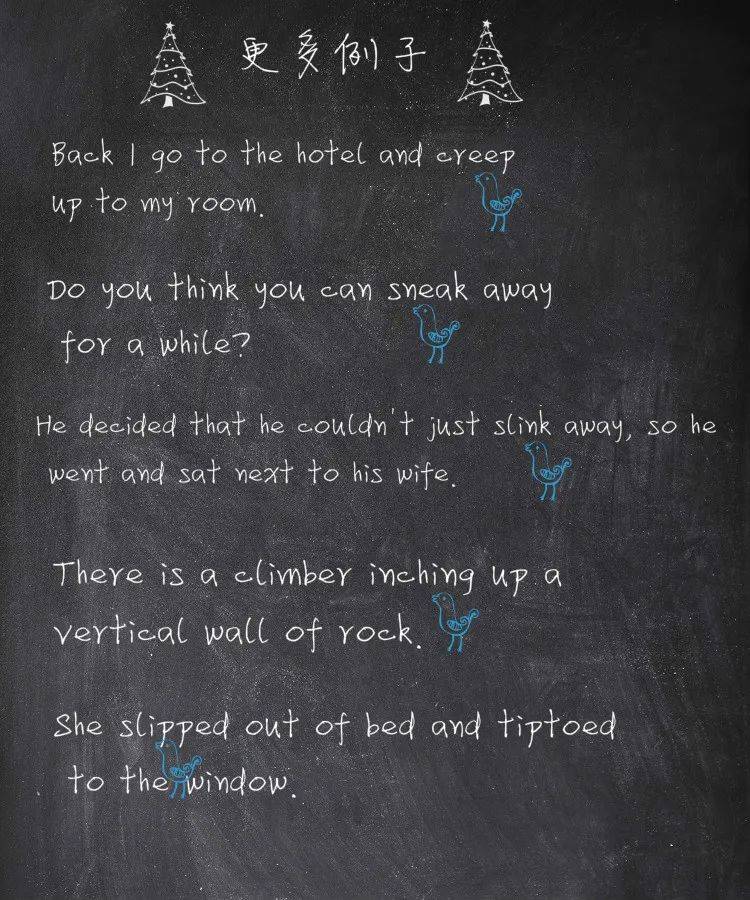 更多例子
Back I go to the hotel and creep
up to my room.
Do you think you can sneak away
for a while?
He decided that he couldn't just slink away, so he
went and sat next to his wife.
There is a climber inching up a
vertical wall of rock.
She slipped out of bed and tiptoed
to the window.